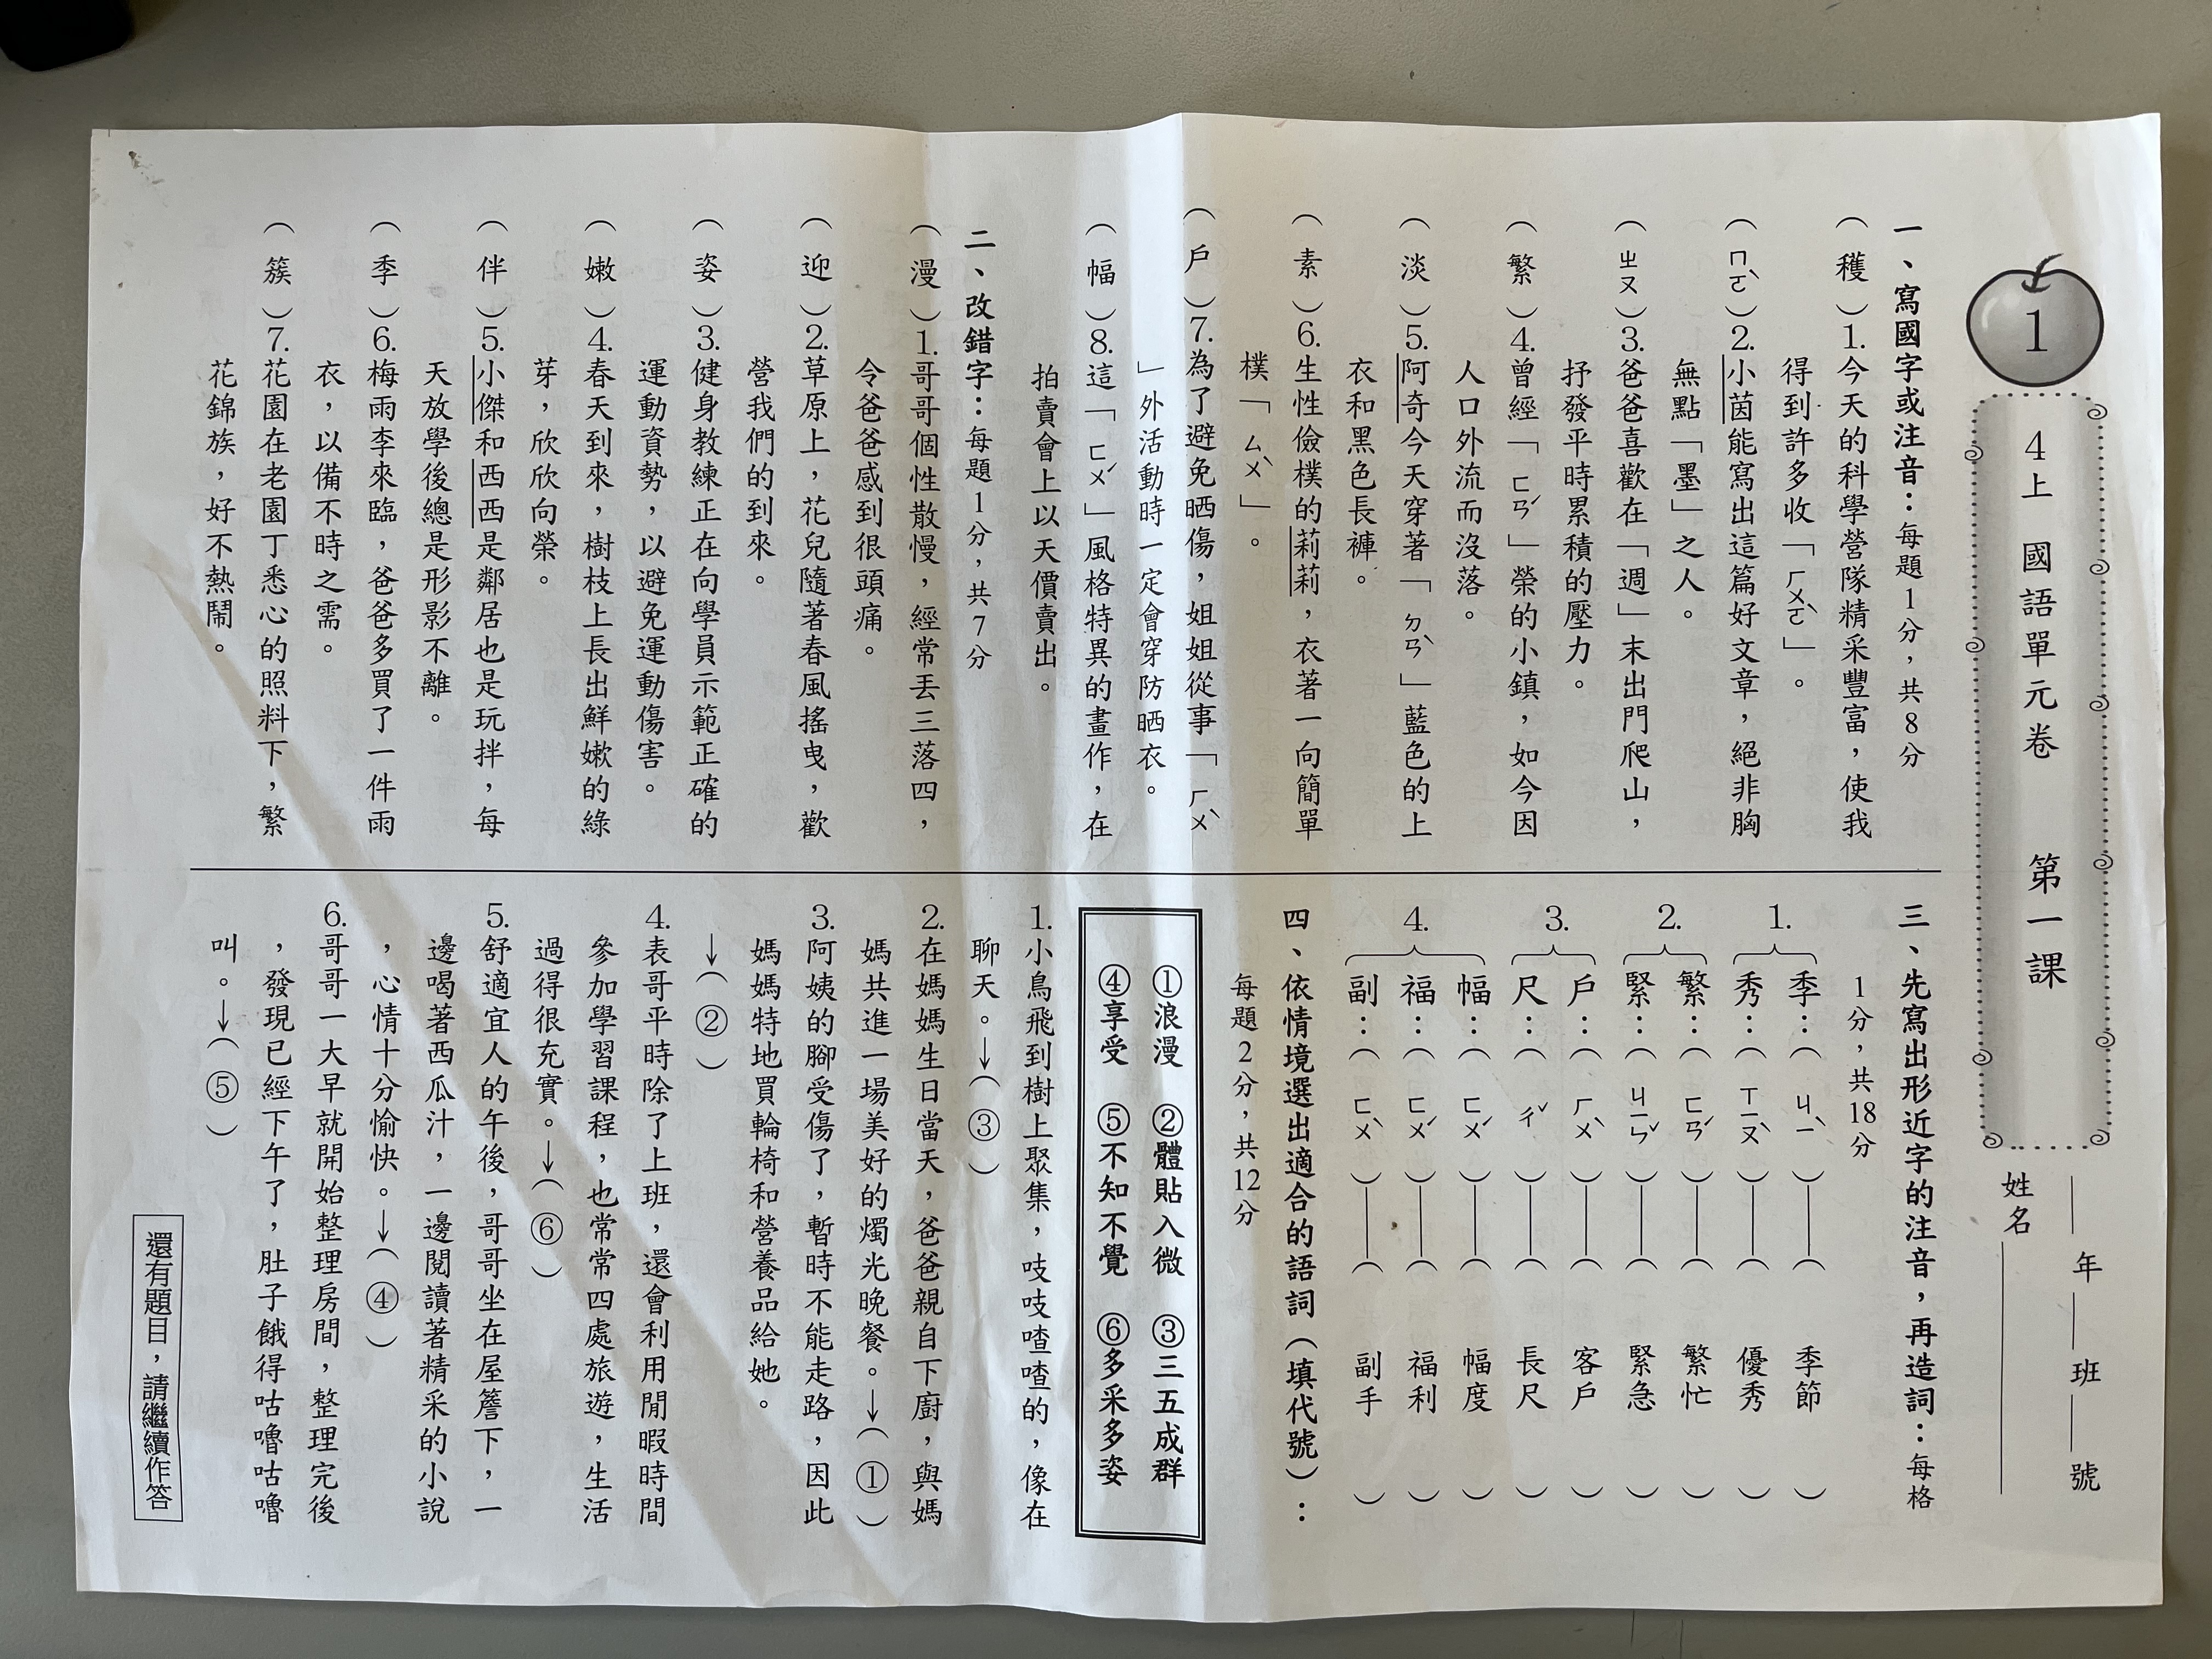 1
4上 國語單元卷 第一課
年 班 號
姓名
一、寫國字或注音：每題1分，共8分
（ 穫 ）1.今天的科學營隊精采豐富，使我
得到許多收「ㄏㄨㄛˋ」。
（ ㄇㄛˋ ）2.小茵能寫出這篇好文章，絕非胸
無點「墨」之人。
（ ㄓㄡ ）3.爸爸喜歡在「週」末出門爬山，
抒發平時累積的壓力。
（ 繁 ）4.曾經「ㄈㄢˊ」榮的小鎮，如今因
人口外流而沒落。
（ 淡 ）5.阿奇今天穿著「ㄉㄢˋ」藍色的上
衣和黑色長褲。
（ 素 ）6.生性儉樸的莉莉，衣著一向簡單
樸「ㄙㄨˋ」。
（ 戶 ）7.為了避免晒傷，姐姐從事「ㄏㄨˋ
」外活動時一定會穿防晒衣。
（ 幅 ）8.這「ㄈㄨˊ」風格特異的畫作，在
拍賣會上以天價賣出。
二、改錯字：每題1分，共7分
（ 漫 ）1.哥哥個性散慢，經常丟三落四，
令爸爸感到很頭痛。
（ 迎 ）2.草原上，花兒隨著春風搖曳，歡
營我們的到來。
（ 姿 ）3.健身教練正在向學員示範正確的
運動資勢，以避免運動傷害。
（ 嫩 ）4.春天到來，樹枝上長出鮮嫰的綠
芽，欣欣向榮。
（ 伴 ）5.小傑和西西是鄰居也是玩拌，每
天放學後總是形影不離。
（ 季 ）6.梅雨李來臨，爸爸多買了一件雨
衣，以備不時之需。
（ 簇 ）7.花園在老園丁悉心的照料下，繁
花錦族，好不熱鬧。
三、先寫出形近字的注音，再造詞：每格
1分，共18分
1.
季：（ ㄐㄧˋ ）──（ 季節 ）
秀：（ ㄒㄧㄡˋ ）──（ 優秀 ）
2.
繁：（ ㄈㄢˊ ）──（ 繁忙 ）
緊：（ ㄐㄧㄣˇ ）──（ 緊急 ）
3.
戶：（ ㄏㄨˋ ）──（ 客戶 ）
尺：（ ㄔˇ ）──（ 長尺 ）
4.
幅：（ ㄈㄨˊ ）──（ 幅度 ）
福：（ ㄈㄨˊ ）──（ 福利 ）
副：（ ㄈㄨˋ ）──（ 副手 ）
四、依情境選出適合的語詞（填代號）：
每題2分，共12分
①浪漫 ②體貼入微 ③三五成群
④享受 ⑤不知不覺 ⑥多采多姿
1.小鳥飛到樹上聚集，吱吱喳喳的，像在
聊天。→（ ③ ）
2.在媽媽生日當天，爸爸親自下廚，與媽
媽共進一場美好的燭光晚餐。→（ ① ）
3.阿姨的腳受傷了，暫時不能走路，因此
媽媽特地買輪椅和營養品給她。
→（ ② ）
4.表哥平時除了上班，還會利用閒暇時間
參加學習課程，也常常四處旅遊，生活
過得很充實。→（ ⑥ ）
5.舒適宜人的午後，哥哥坐在屋簷下，一
邊喝著西瓜汁，一邊閱讀著精采的小說
，心情十分愉快。→（ ④ ）
6.哥哥一大早就開始整理房間，整理完後
，發現已經下午了，肚子餓得咕嚕咕嚕
叫。→（ ⑤ ）
還有題目，請繼續作答